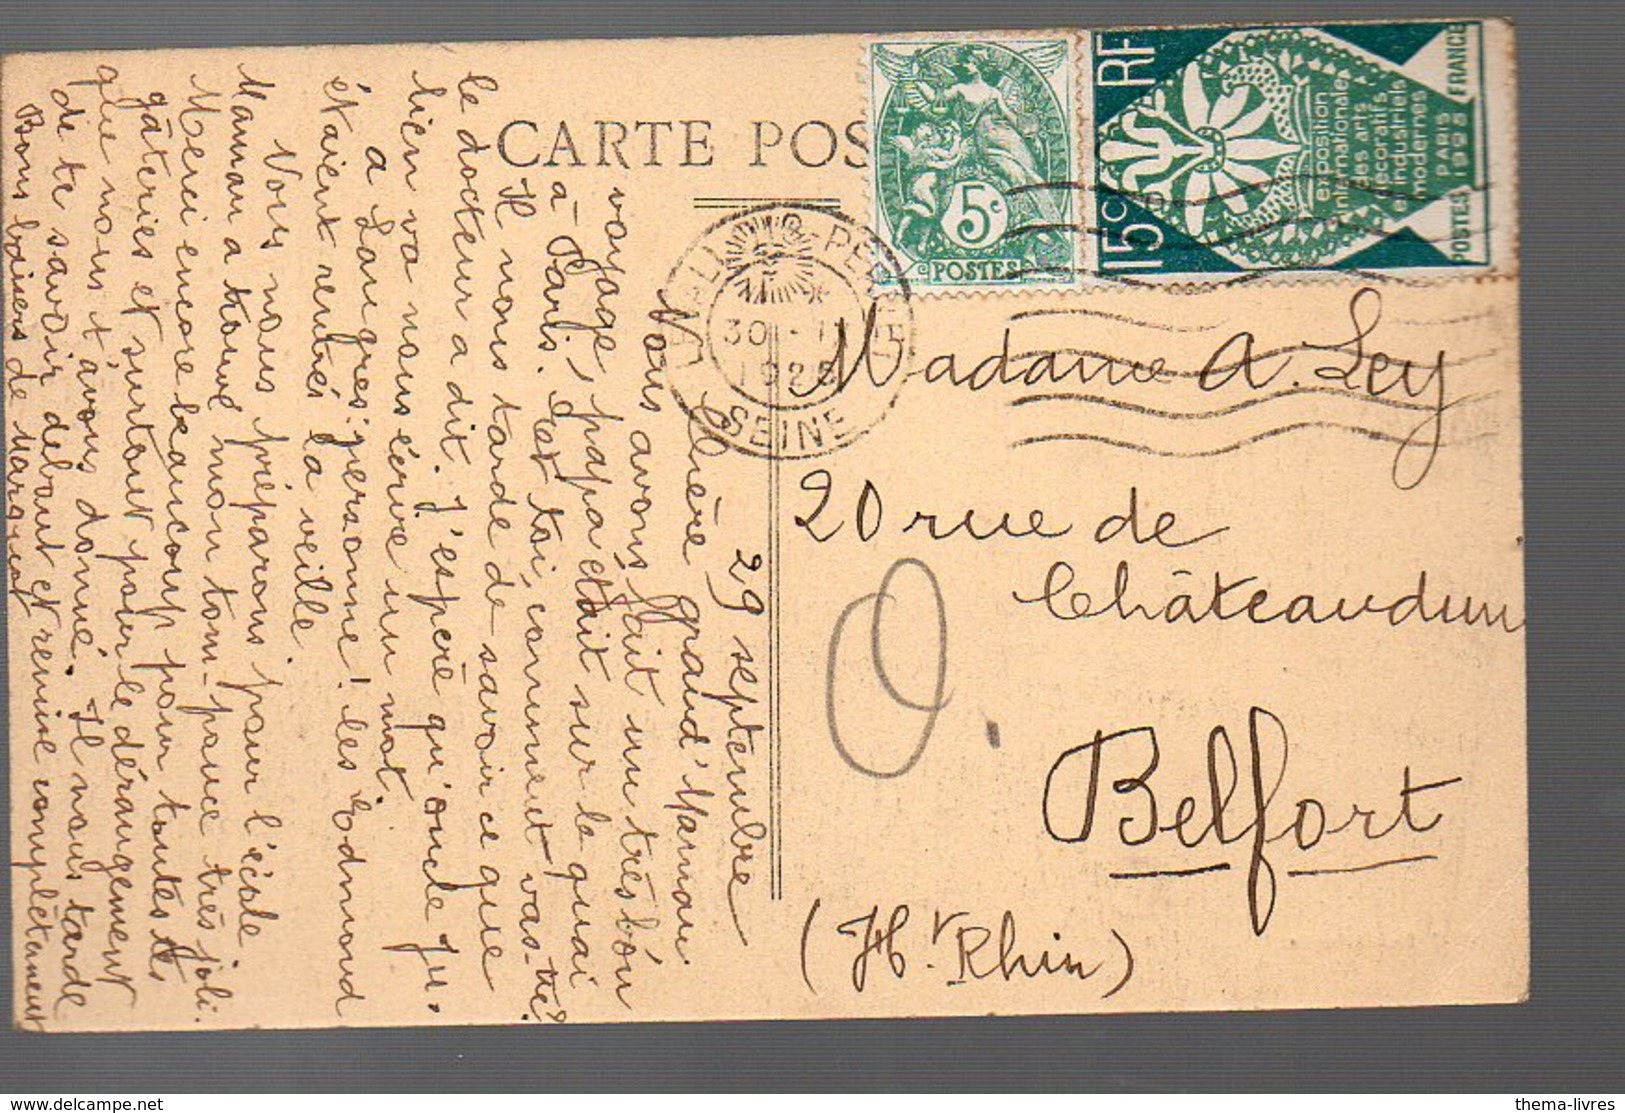 CARTE POS
RF
15c
exposition
internationale
des arts
décoratifs
& industriels
modernes
PARIS
1925
POSTES FRANCE
5c
POSTES
30 - 1
1925
SEINE
29 septembre
Chère grand' Maman
Nous avons fait un très bon
voyage, papa était sur le quai
à Paris. Et toi, comment vas-tu?
Il nous tarde de savoir ce que
le docteur a dit. J'espère qu'oncle Ju-
lien va nous écrire un mot.
à Langres: personne! les Edmond
étaient rentrés la veille.
Nous nous préparons pour l'école
Maman a trouvé mon tom-pouce très joli.
Merci encore beaucoup pour toutes tes
gâteries et surtout pour le dérangement
que nous t'avons donné. Il nous tarde
de te savoir debout et remise complètement
Bons baisers de Margu
Madame A. Ley
20 rue de
Châteaudun
Belfort
(Ht Rhin)
thema-livres
www.delcampe.net